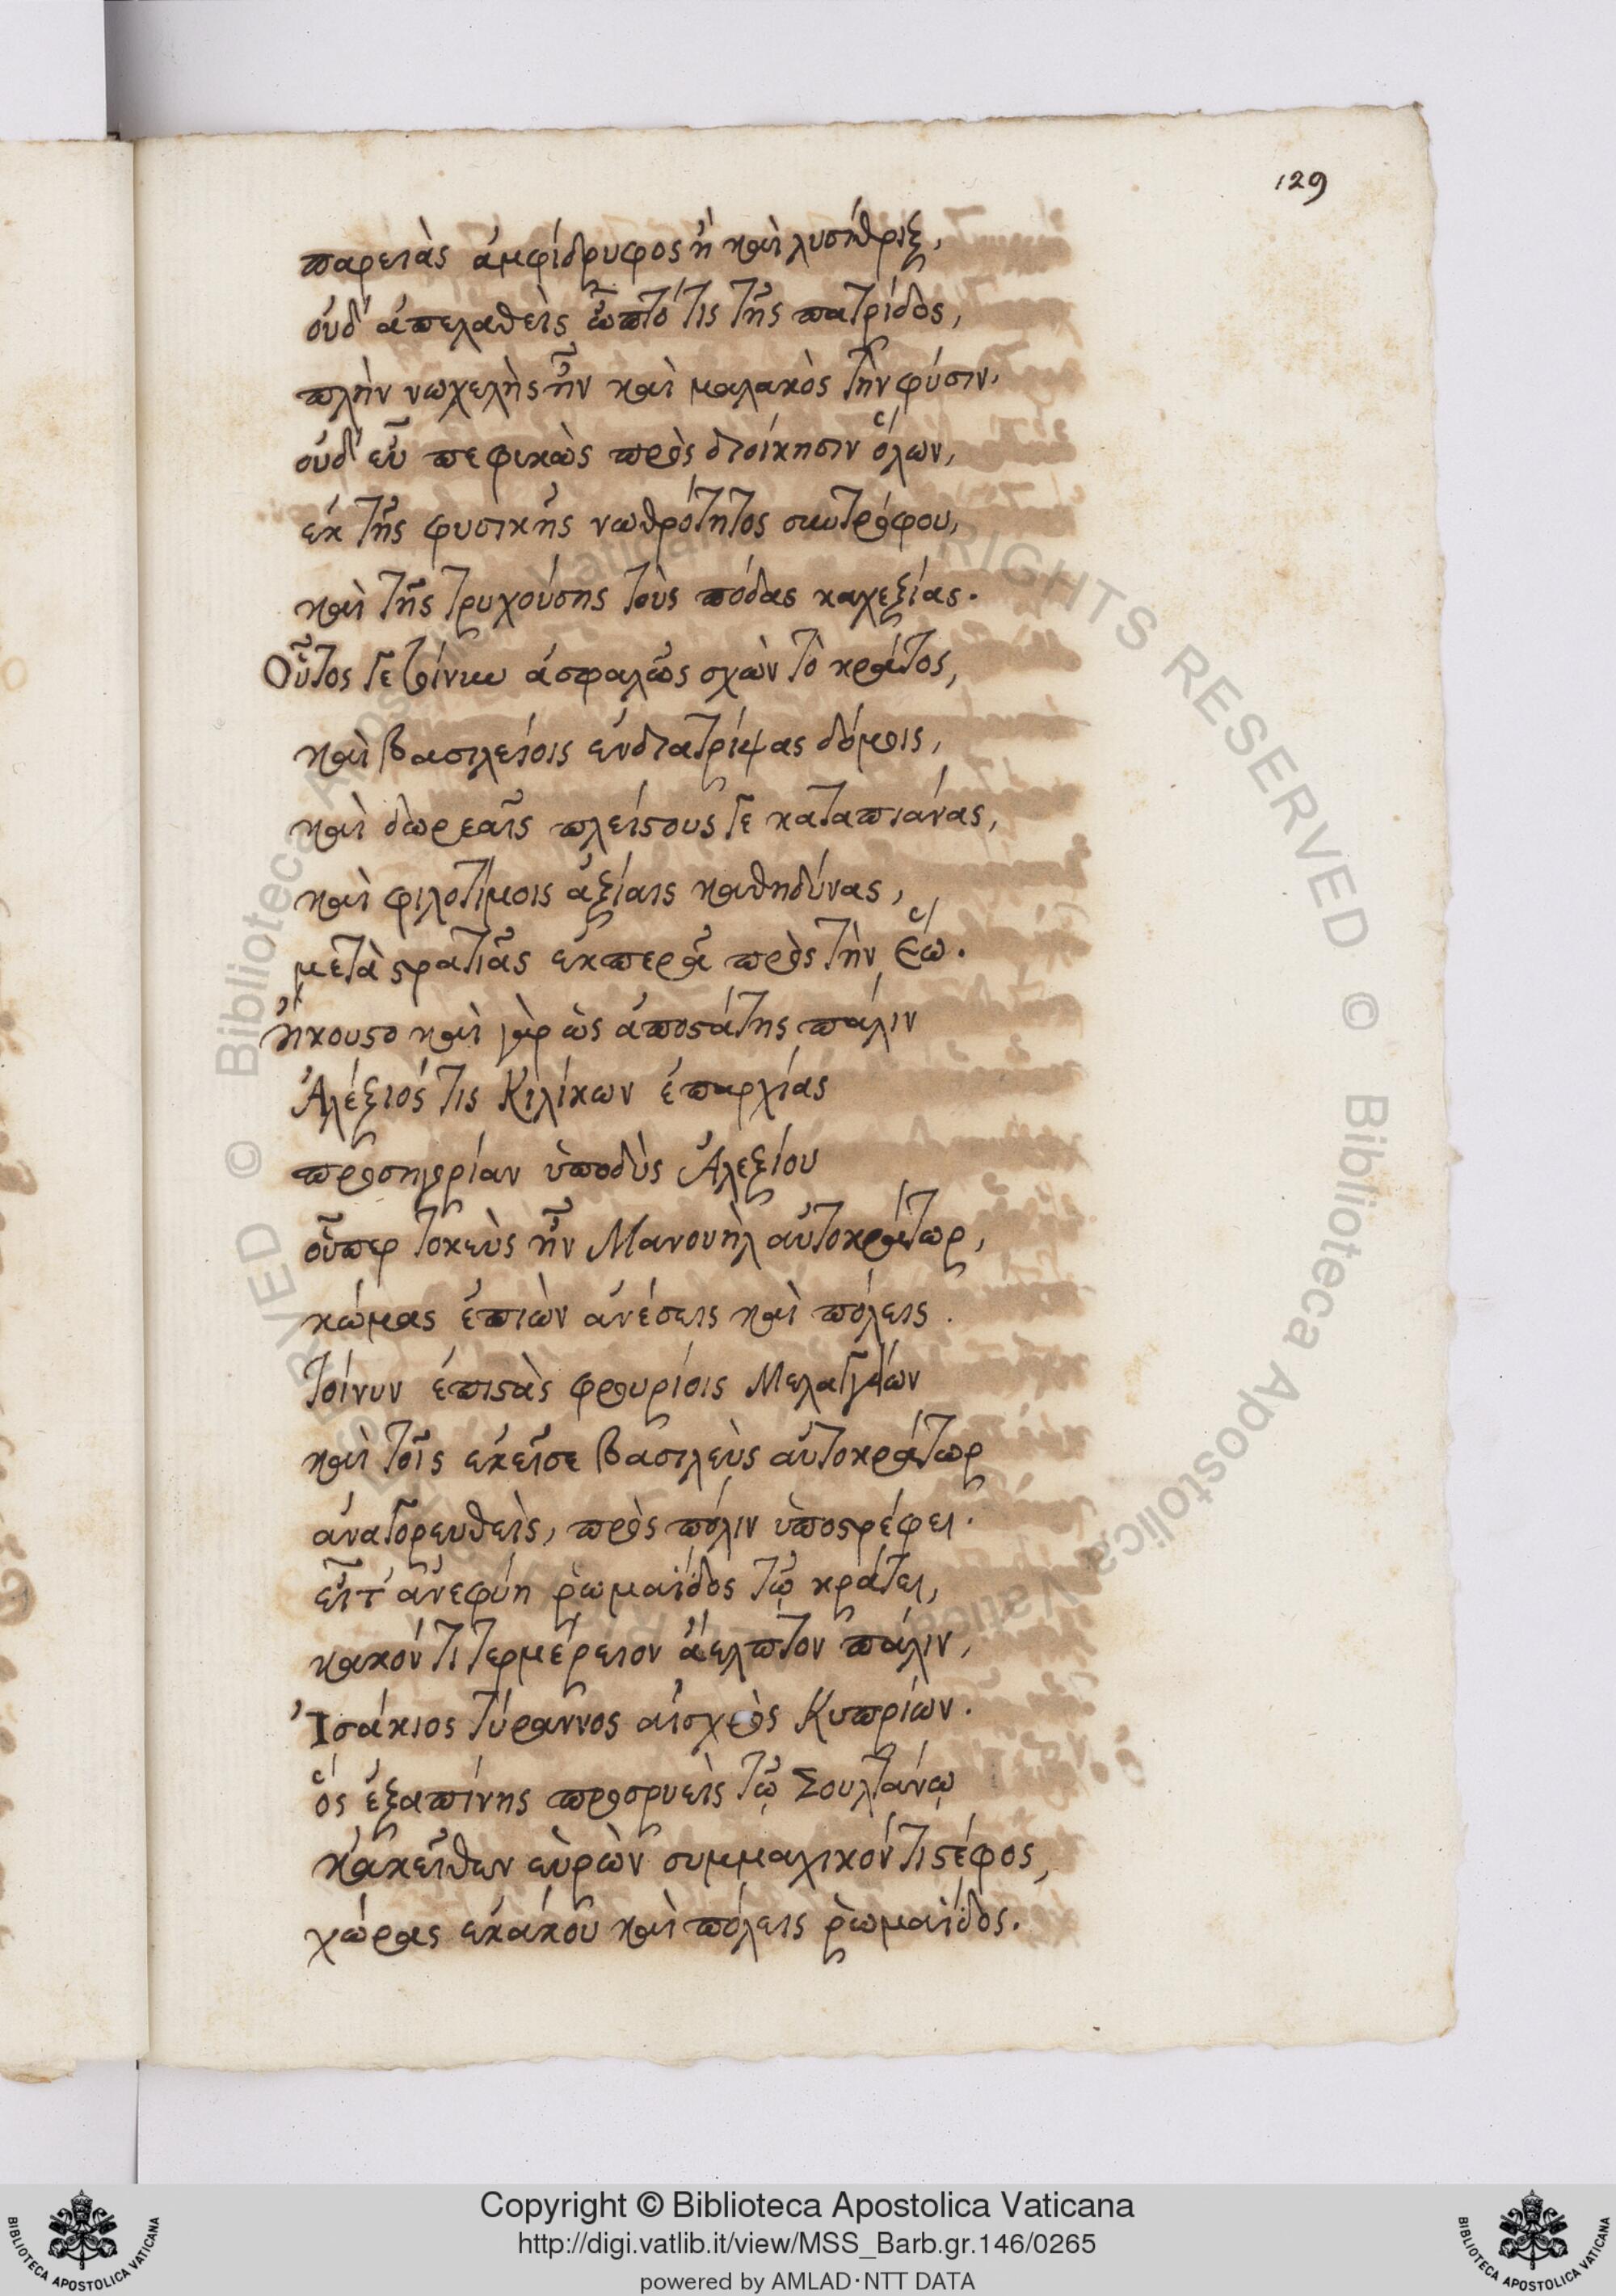 129
παρειὰς ἀμφίδρυφος ἢ καὶ λυσίθριξ,
οὐδ' ἀπελαθεὶς ὦπτό τις τῆς πατρίδος,
πλὴν νωχελὴς ἦν καὶ μαλακὸς τὴν φύσιν,
οὐδ' εὖ πεφικὼς πρὸς διοίκησιν ὅλων,
ἐκ τῆς φυσικῆς νωθρότητος συντρόφου,
καὶ τῆς τρυχούσης τοὺς πόδας καχεξίας.
Οὗτος γε τοίνυν ἀσφαλῶς σχὼν τὸ κράτος,
καὶ βασιλείοις ἐνδιατρίψας δόμοις,
καὶ δωρεαῖς πλείστους γε καταπιάνας,
καὶ φιλοτίμοις ἀξίαις καθηδύνας,
μετὰ στρατιᾶς ἐκπερᾷ πρὸς τὴν ἕω.
ἤκουστο καὶ γὰρ ὡς ἀποστάτης πάλιν
Ἀλέξιός τις Κιλίκων ἐπαρχίας
προσηγορίαν ὑποδὺς Ἀλεξίου
οὗπερ τοκεὺς ἦν Μανουὴλ αὐτοκράτωρ,
κώμας ἐπιὼν ἀνέσεις καὶ πόλεις.
τοίνυν ἐπιστὰς φρουρίοις Μελαγγίων
καὶ τοῖς ἐκεῖσε βασιλεὺς αὐτοκράτωρ
ἀναγορευθεὶς, πρὸς πόλιν ὑποστρέφει.
εἶτ' ἀνεφύη ῥωμαΐδος τῷ κράτει,
κακόν τι τερμέρειον ἄελπτον πάλιν,
Ἰσάκιος τύραννος αἰσχρὸς Κυπρίων.
ὃς ἐξαπίνης προσρυεὶς τῷ Σουλτάνῳ
κἀκεῖθεν εὑρὼν συμμαχικόν τι στέφος,
χώρας ἐκάκου καὶ πόλεις ῥωμαΐδος.
Copyright © Biblioteca Apostolica Vaticana
http://digi.vatlib.it/view/MSS_Barb.gr.146/0265
powered by AMLAD·NTT DATA